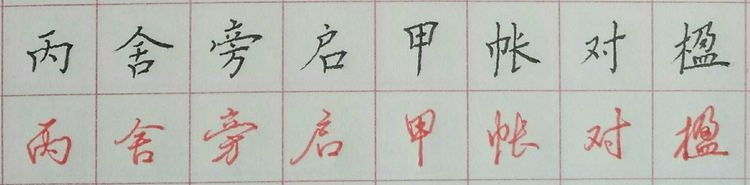 丙舍旁启甲帐对楹
丙舍旁启甲帐对楹